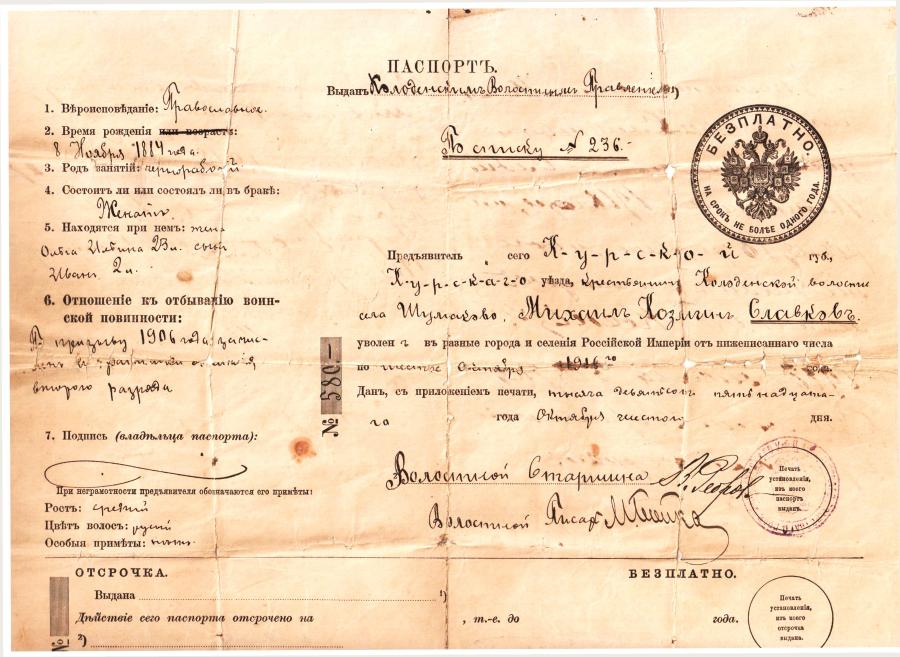 ПАСПОРТЪ.
Выданъ Колоденскимъ Волостнымъ Правленіемъ ¹)
1. Вѣроисповѣданіе: Православное.
2. Время рожденія или возрастъ:
8 Ноября 1884 года.
3. Родъ занятій: чернорабочій
4. Состоитъ ли или состоялъ ли въ бракѣ:
Женатъ.
5. Находятся при немъ: жена
Ольга 23 л. сынъ
Иванъ 2 л.
6. Отношеніе къ отбыванію воин-
ской повинности:
Къ призыву 1906 года зачис-
ленъ въ ратники ополченія
второго разряда
7. Подпись (владѣльца паспорта):
При неграмотности предъявителя обозначаются его примѣты:
Ростъ: средній
Цвѣтъ волосъ: русый
Особыя примѣты:
По списку № 236.
БЕЗПЛАТНО.
НА СРОКЪ НЕ БОЛѢЕ ОДНОГО ГОДА.
Предъявитель сего К-у-р-с-к-о-й губ.,
К-у-р-с-к-а-г-о уѣзда, крестьянинъ Колоденской волости
села Шумаково, Михаилъ Козминъ Славковъ.
уволенъ въ разные города и селенія Россійской Имперіи отъ нижеписаннаго числа
по шестое Октября 1916 го года.
Данъ, съ приложеніемъ печати, тысяча девятьсотъ пятнадцата-
го года Октября шестого дня.
№ 580
Волостной Старшина
Волостной Писарь
Печать
установленія,
изъ коего
паспортъ
выданъ.
ОТСРОЧКА.
БЕЗПЛАТНО.
Выдана ¹)
Дѣйствіе сего паспорта отсрочено на , т.-е. до года.
²)
№
Печать
установленія,
изъ коего
отсрочка
выдана.